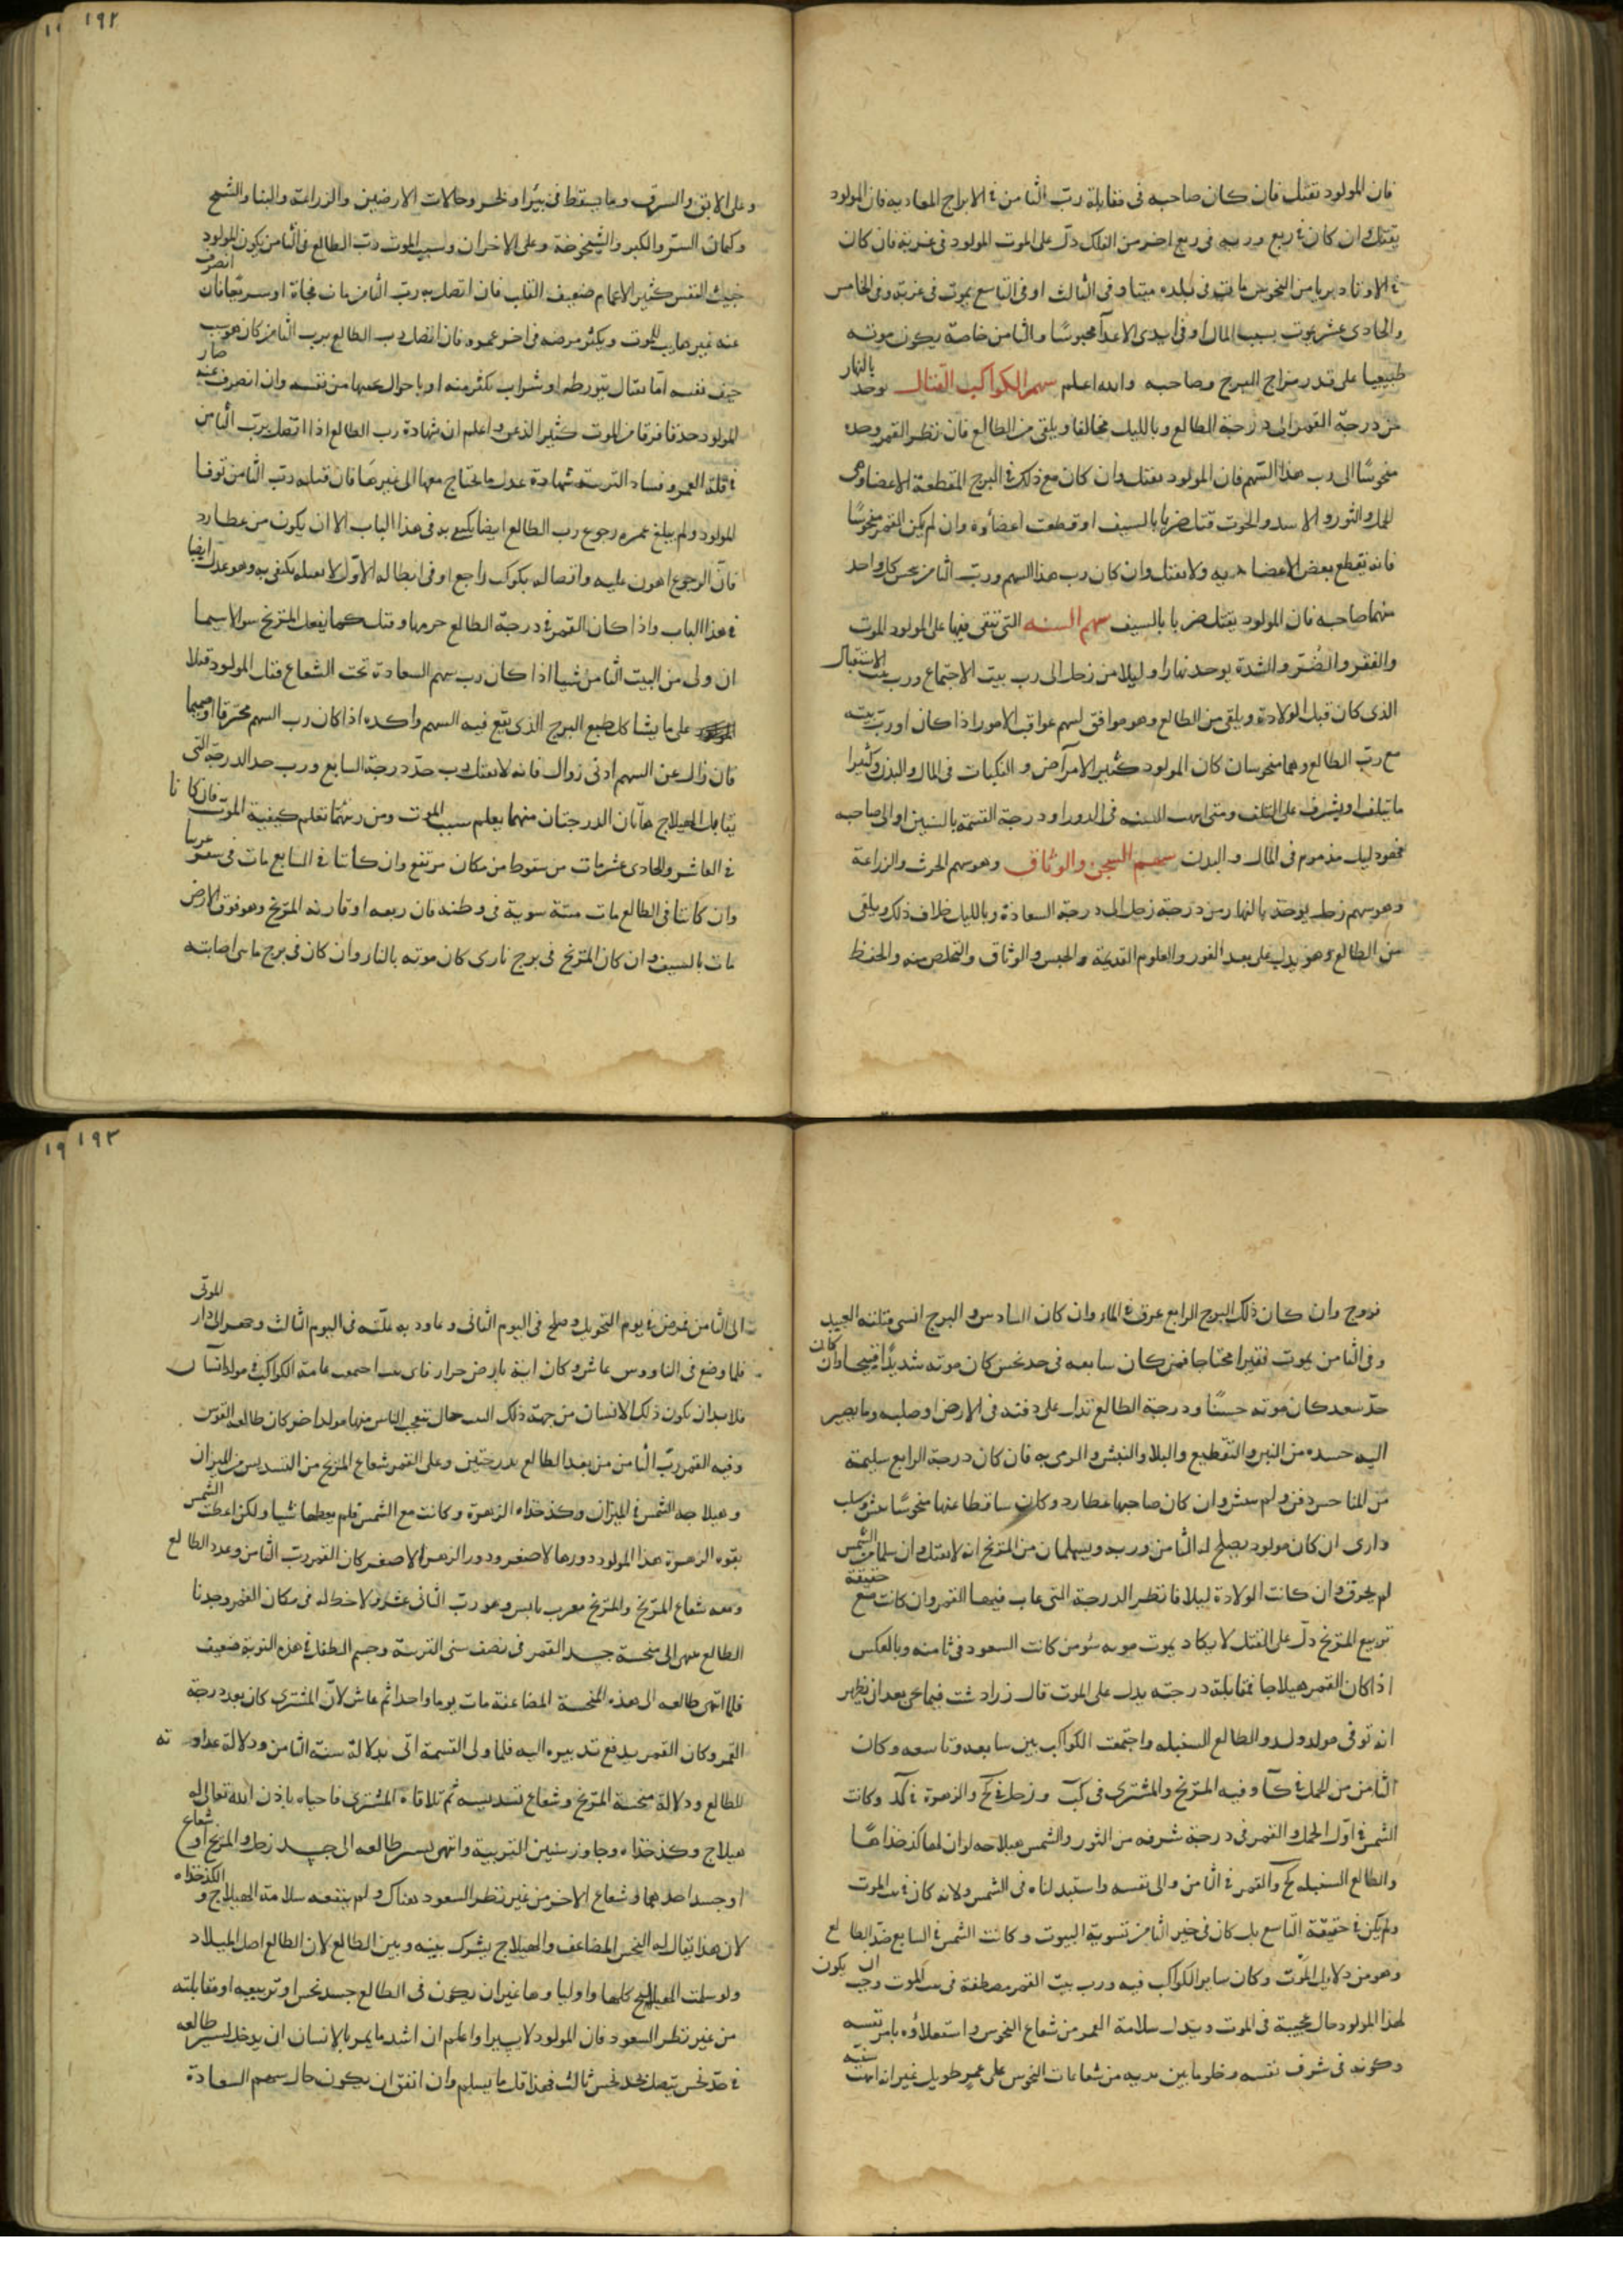 فان المولود يقتل فان كان صاحبه فى مقابلة ربّ الثامن فى الابراج المعاديه فان المولود
يقتل وان كان فى ربع وربه فى ربع اخر من الفلك دلّ على الموت المولود فى غربة فان كان
فى الاوتاد بريا من النحوس مات فى بلده ميتا وفى الثالث او فى التاسع يموت فى غربة وفى الخامس
والحادى عشر يموت بسبب المال او فى ايدى الاعدآ محبوسًا والثامن خاصة يكون موته
طبيعيا على قدر مزاج البرج وصاحبه والله اعلم سهم الكواكب القتال يوخذ بالنهار
من درجة القمر الى درجة الطالع وبالليل مخالفا ويلقى من الطالع فان نظر القمر وحده
منحوسًا الى رب هذا السهم فان المولود يقتل وان كان مع ذلك فى البرج المقطعة الاعضا وهى
الحمل والثور والاسد والحوت قتل ضربا بالسيف او قطعت اعضاؤه وان لم يكن القمر منحوسًا
فانه يقطع بعض الاعضا ولا يقتل وان كان رب هذا السهم ورب الثامن نحس كل واحد
منهما صاحبه فان المولود يقتل ضربا بالسيف سهم السنه التى تتقى فيها على المولود الموت
والفقر والضُرّ والشدة يوخذ نهارا وليلا من زحل الى رب بيت الاجتماع ورب بيت الاستقبال
الذى كان قبل الولادة ويلقى من الطالع وهو موافق لسهم عواقب الامور اذا كان او ربّ بيته
مع ربّ الطالع وهما منحوسان كان المولود كثير الامرآض والنكبات فى المال والبدن وكثيرا
ما يتلف او يشرف على التلف ومتى فى الدور او درجة القسمة بالسنين او الى صاحبه
فهو دليل مذموم فى المال والبدن سهم السجن والوثاق وهو سهم الحرث والزراعة
وهو سهم زحل يوخذ بالنهار من درجة زحل الى درجة السعادة وبالليل خلاف ذلك ويلقى
من الطالع وهو يدل على بعد الغور والعلوم القديمة والحبس والوثاق والتخلص منه والحفظ
وعلى الابق والسرق وما يسقط فى بئر او بحر وحالات الارضين والزراعة والبنا والشح
وكمان السرّ والكبر والشيخوخة وعلى الاخران وسبب الموت ربّ الطالع فى الثامن يكون المولود
خبيث النفس كثير الاغمام ضعيف القلب فان اتصل به ربّ الثامن مات فجاة او سريعا فان انصرف
عنه غير هايب للموت ويكثر مرضه فى اخر عمره فان اتصل رب الطالع برب الثامن كان هو سبب
حيف نفسه اما بقتال يتورطه او شراب يكثر منه او باحوال من نفسه وان انصرف عنه صار
المولود حذقا فرقا من الموت كثير الذعر واعلم ان شهادة رب الطالع اذا اتصل بربّ الثامن
فى قلة العمر وفساد التربية شهادة عدل ما يحتاج معها الى غيرها فان قبله ربّ الثامن توفا
المولود ولم يبلغ عمره رجوع رب الطالع ايضا يكبح به فى هذا الباب الا ان يكون من عطارد
فانّ الرجوع اهون عليه واتصاله بكوكب راجع او فى ابطاله الاوّل يكتفى به وهو عدل ايضا
فى هذا الباب واذا كان القمر فى درجة الطالع وقتل كما يفعل المرّيخ سوا لاسيما
ان ولى من البيت الثامن شيا اذا كان رب سهم السعادة تحت الشعاع قتل المولود قتلا
على ما يشاكل طبع البرج الذى يقع فيه السهم واكده اذا كان رب السهم محترقا او صميما
فان زال عن السهم ادنى زوال فانه لا يقتل رب حدّ درجة السابع ورب حد الدرجة التى
تقابل الهيلاج هاتان الدرجتان منهما يعلم سبب الموت ومن ربّهما تعلم كيفية الموت فان كانا
فى العاشر والحادى عشر مات من سقوط من مكان مرتفع وان كانتا فى السابع مات فى سفر غريبا
وان كانتا فى الطالع مات ميتة سوية فى وطنه فان ربعه او قارنه المرّيخ وهو فوق الارض
مات بالسيف وان كان المرّيخ فى برج نارى كان موته بالنار وان كان فى برج مائى اصابته
وان كان ذلك البرج الرابع غرق فى الماء وان كان السادس والبرج انسى قتلته العبيد
وفى الثامن يموت فقيرا محتاجا فمن كان سابعه فى حد نحس كان موته شديدًا قبيحا وان كانت
حدّ سعد كان موته حسنًا ودرجة الطالع تدل على دفنه فى الارض او صلبه وما يصير
اليه جسده من النبر والتقطيع والبلا والنبش والرمى به فان كان درجة الرابع سليمة
من المناحس دفن ولم ينبش وان كان صاحبها عطارد وكان ساقطا عنها منحوسًا نبش وسلب
وارى ان كان مولود يصلح له الثامن وربه ويسلمان من المرّيخ انه لا يقتل وان سلما من الشمس
لم يحرق وان كانت الولادة ليلا فانظر الدرجة التى غاب فيها القمر وان كانت مع حقيقة
تربيع المرّيخ دلّ على القتل لا يكاد يموت موته سؤ من كانت السعود فى ثامنه وبالعكس
اذا كان القمر هيلاجا فمقابلة درجته يدل على الموت قال زرادشت فيما نحن بعد ان نظر
انه توفى مولد ولد والطالع السنبله واجتمعت الكواكب بين سابعه وتاسعه وكان
الثامن من الحمل فى كآ وفيه المرّيخ والمشترى فى كب وزحل فى كح والزهرة فى كد وكانت
الشمس فى اوّل الحمل والقمر فى درجة شرفه من الثور والشمس هيلاجه لو ان لها كذخذاها
والطالع السنبله كح والقمر فى الثامن والى نفسه واستبدلناه فى الشمس ولانه كان فى بيت الموت
ولم يكن فى حقيقة التاسع بل كان فى خير الثامن بتسوية البيوت وكانت الشمس فى السابع ضدّ الطالع
وهو من دلايل الموت وكان ساير الكواكب فيه ورب بيت القمر فى بيت الموت وجب ان يكون
لهذا المولود حال عجيبة فى الموت ويدل سلامة القمر من شعاع النحوس واستعلاؤه بامر نفسه
وكونه فى شرف نفسه وخلو ما بين يديه من شعاعات النحوس على عمر طويل غير انه سنيه
الى الثامن فمرض فى يوم التحويل وصلح فى اليوم الثانى وعاود به علّته فى اليوم الثالث وحمل الى دار الموتى
فلما وضع فى الناووس عاش وكان ابنه بارض عامة الكواكب فى مولد انسان
فلا بد ان يكون ذلك الانسان من جهة ذلك البيت حال تتعجب الناس منها مولد اخر كان طالعه القوس
وفيه القمر ربّ الثامن من بعد الطالع بدرجتين وعلى القمر شعاع المرّيخ من التسديس من الميزان
وهيلاجه الشمس فى الميزان وكذخذاه الزهرة وكانت مع الشمس فلم يعطها شيا ولكن اعطت الشمس
بقوه الزهرة هذا المولود دورها الاصغر ودور الزهرا الاصغر كان القمر ربّ الثامن وعند الطالع
ومعه شعاع المرّيخ والمرّيخ مغرب يابس وهو ربّ الثانى عشر ولا حظ له فى مكان القمر وجدنا
الطالع ينتهى الى منحسة جسد القمر فى نصف سنى التربية وجسم الطفل فى هذه التربة ضعيف
فلما انتهى طالعه الى هذه المنحسة المضاعفة مات يوما واحدا ثم عاش لانّ المشترى كان بعد درجة
القمر وكان القمر يدفع تدبيره اليه فلما ولى القسمة اتى بدلالة سنة الثامن ودلالة عداوته
للطالع ودلالة منحسة المرّيخ وشعاع تسديسه ثم تلاقاه المشترى فاحياه باذن الله تعالى له
هيلاج وكذخذاه وجاوز سنين التربية وانتهى بسير طالعه الى جسد زحل والمرّيخ او شعاع
او جسد احدهما وشعاع الاخر من غير نظر السعود هناك ولم ينفعه سلامة الهيلاج و الكذخذاه
لان هذا يقال له النحس المضاعف والهيلاج يشرك بينه وبين الطالع لان الطالع اصل الميلاد
ولو سلمت الهياليج كلها واوليا وها غير ان يكون فى الطالع جسد نحس او تربيعه او مقابلته
من غير نظر السعود فان المولود لا يبرا واعلم ان اشد ما يمر بالانسان ان يدخل تسيير طالعه
فى حدّ نحس يتصل بحد نحس ثالث فهذا قل ما يسلم وان اتفق ان يكون حال سهم السعادة